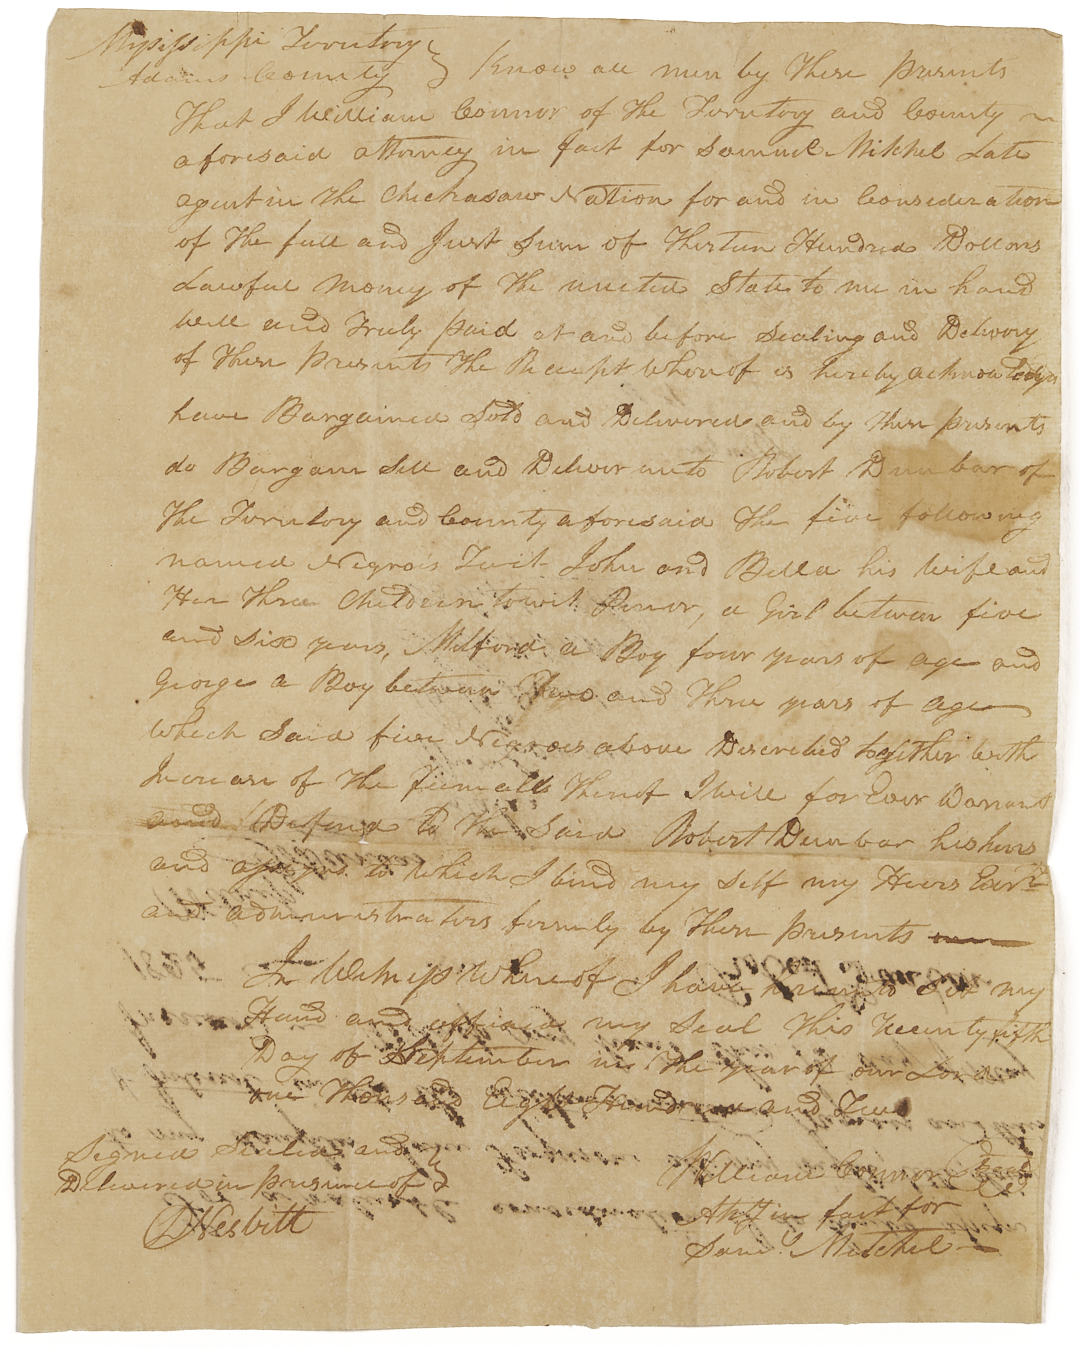 Mississippi Territory }
Adams County } Know all men by These presents
That I William Connor of the Terrutory and County
aforesaid attorney in fact for Samuel Mitchel Late
agent in the Chickasaw Nation for and in Consideration
of the full and Just Sum of Thirteen Hundred Dollors
Lawful Money of the united State to me in hand
well and Truly paid at and before Sealing and Delivory
of These presents The Receipt Whereof is hereby acknowledges
have Bargained Sold and Delivered and by these presents
do Bargain Sell and Deliver unto Robert Dunbar of
The Terrutory and County aforesaid the five following
named Negrois Twit John and Bella his wife and
Her Three Children towit, a Girl between five
and Six years, Milford a Boy four years of age and
George a Boy between Two and Three years of age
Which Said five Negroes above Descrebed together with
Increase of the feemalls thereof I will for Ever Warrant
and Defend to the Said Robert Dunbar his heirs
and assigns to Which I bind my Self my Heirs Exrs
and administrators firmly by These presents
In Witness Whereof I have hereunto Set my
Hand and affixed my Seal this Twenty fifth
Day of September in the year of our Lord
one Thousand Eight Hundred and Two
Signed Sealed and }
Delivered in presence of }
William Connor Seal
Atty in fact for
Saml Mitchel
Nesbitt